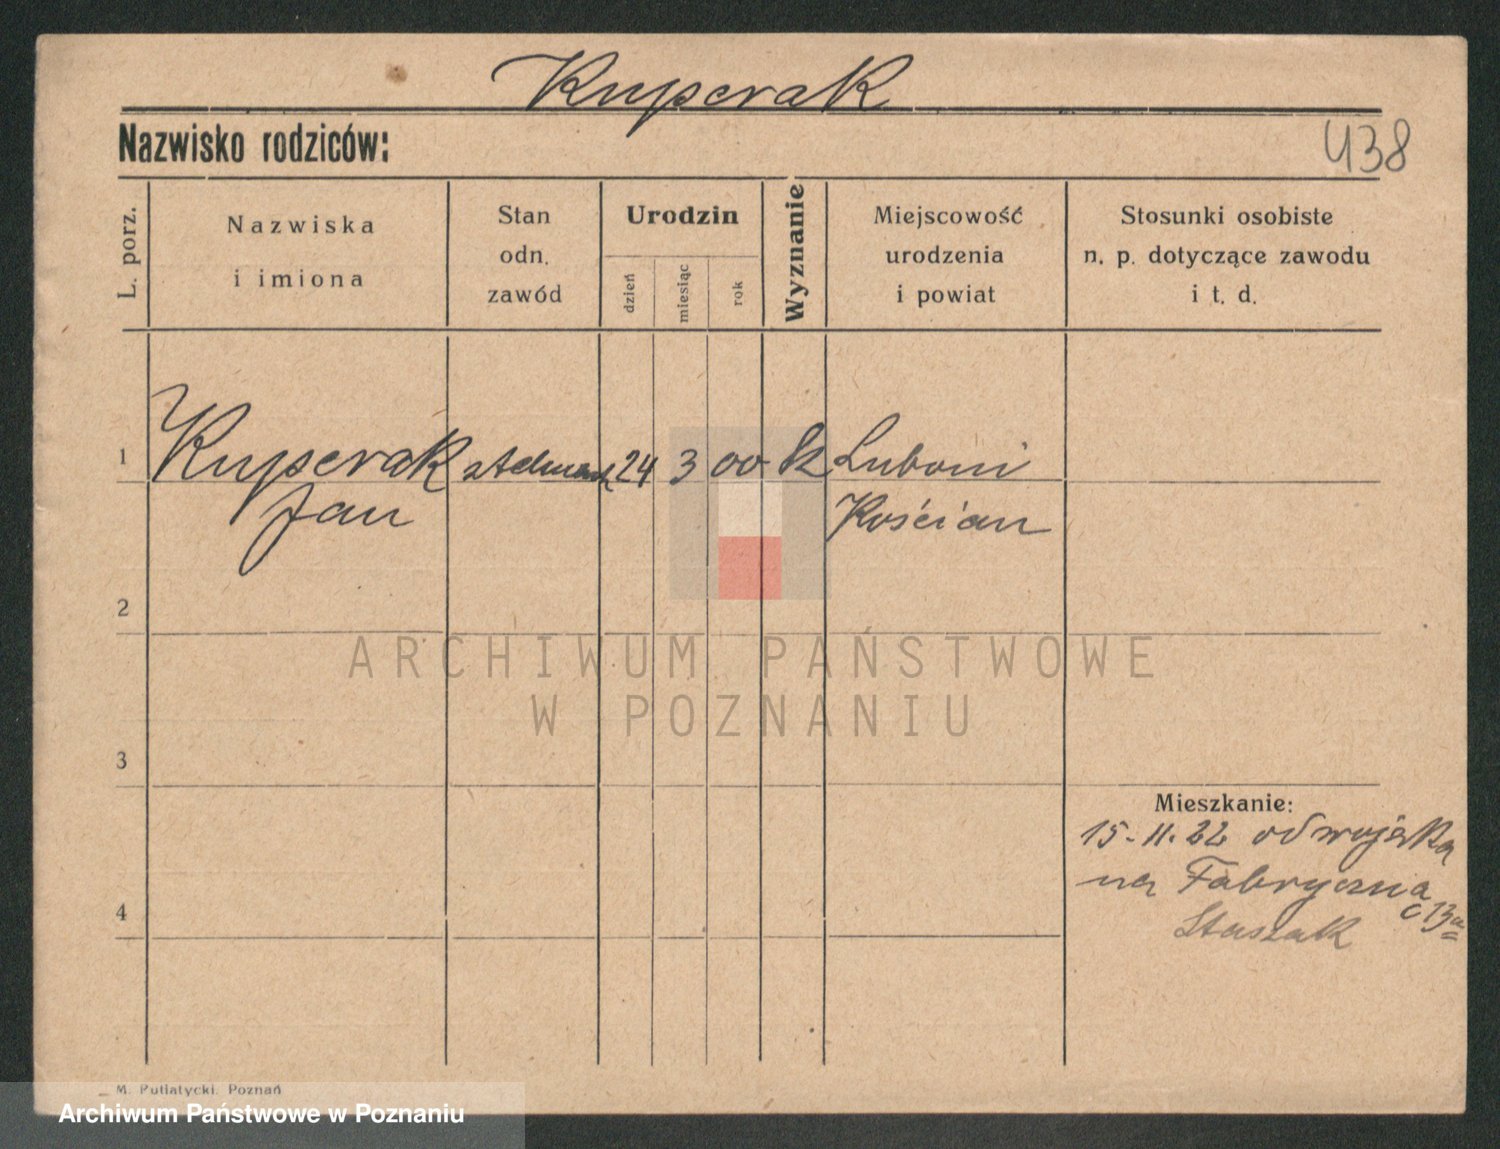 Kuperak
Nazwisko rodziców:
438
L. porz.
Nazwiska
i imiona
Stan
odn.
zawód
Urodzin
dzień
miesiąc
rok
Wyznanie
Miejscowość
urodzenia
i powiat
Stosunki osobiste
n. p. dotyczące zawodu
i t. d.
1 Kuperak stelmach 24 3 00 k Luboni
Jan Kościan
2
ARCHIWUM PAŃSTWOWE
W POZNANIU
3
Mieszkanie:
15-11.22 od wojska
na Fabryczna
4
13a
Staszak
M. Putiatycki. Poznań
Archiwum Państwowe w Poznaniu